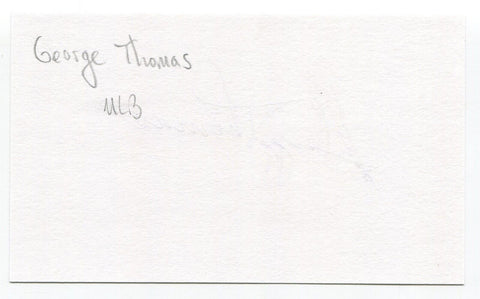 George Thomas
MLB